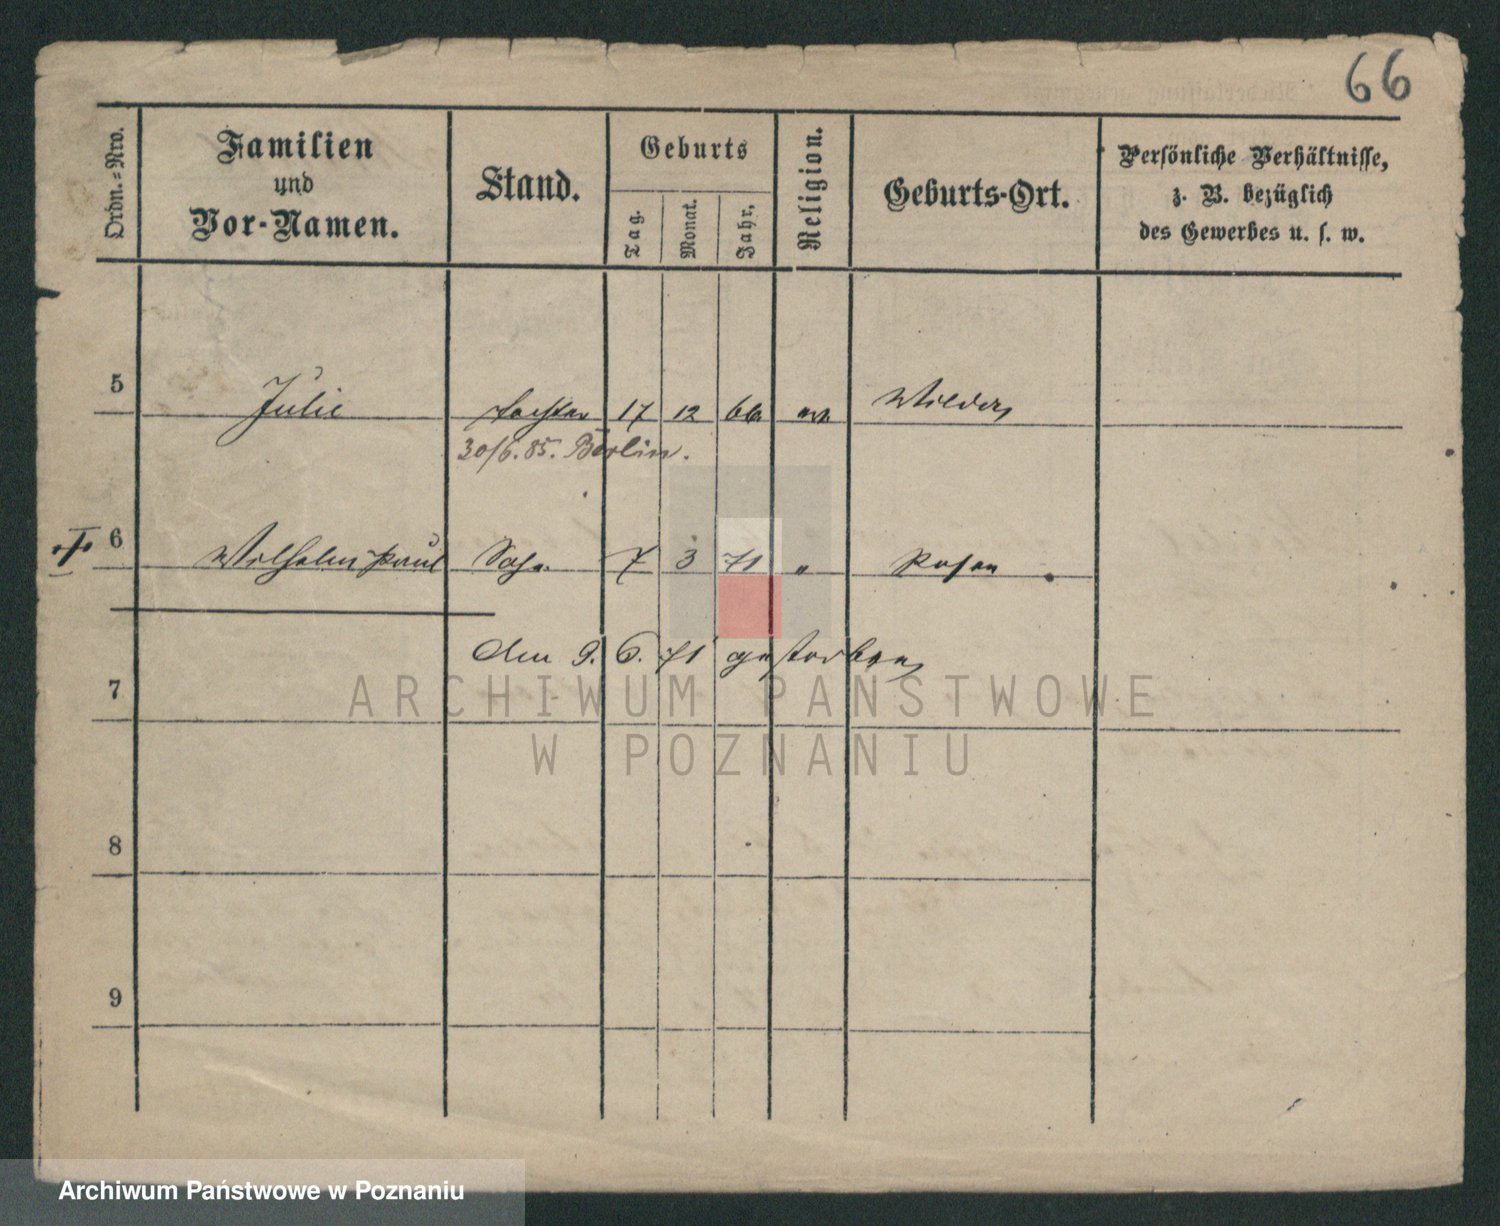 66
Ordn.-Nro.
Familien
und
Vor-Namen.
Stand.
Geburts
Tag.
Monat.
Jahr,
Religion.
Geburts-Ort.
Persönliche Verhältnisse,
z. B. bezüglich
des Gewerbes u. s. w.
5 Julie Tochter 17 12 66 ev Wilda
30/6. 85. Berlin.
6 Wilhelm Paul Sohn 7 3 71 " Posen
den 9. 6. 71 gestorben
7
8
9
ARCHIWUM PAŃSTWOWE
W POZNANIU
Archiwum Państwowe w Poznaniu